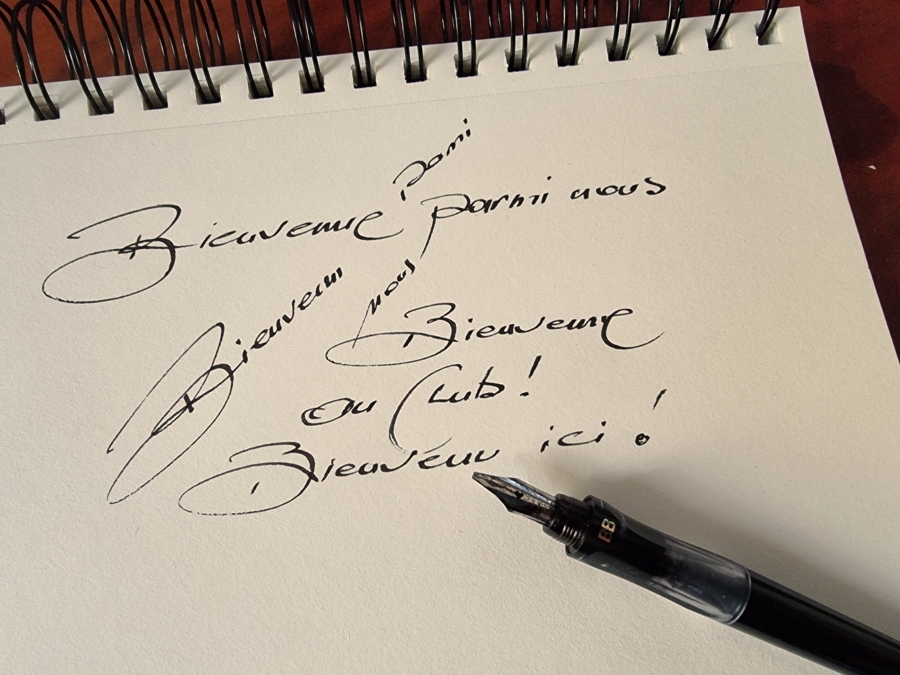 Bienvenue parmi nous
parmi
Bienvenu
nous
Bienvenue
au Club !
Bienvenu ici !
EB